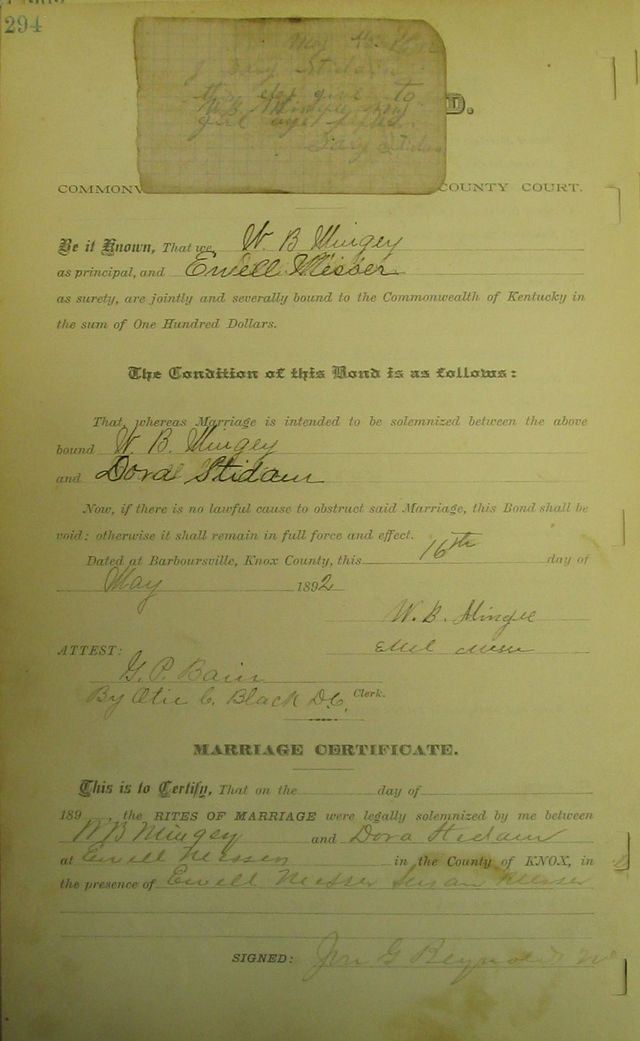 294
May
I
this day give to
W B Mingey my
girl
D.
COMMONW
COUNTY COURT.
Be it Known, That we, W B Mingey
as principal, and Ewell Messer
as surety, are jointly and severally bound to the Commonwealth of Kentucky in
the sum of One Hundred Dollars.
The Condition of this Bond is as follows:
That, whereas Marriage is intended to be solemnized between the above
bound W. B. Mingey
and Dora Stidam
Now, if there is no lawful cause to obstruct said Marriage, this Bond shall be
void; otherwise it shall remain in full force and effect.
Dated at Barboursville, Knox County, this 16th day of
May 1892
W. B. Mingee
ATTEST:
G. P. Bain
By Otic C. Black D.C. Clerk.
MARRIAGE CERTIFICATE.
This is to Certify, That on the day of
189 , the RITES OF MARRIAGE were legally solemnized by me between
W B Mingey and Dora Stidam
at Ewell Messers in the County of KNOX, in
the presence of Ewell Messer Susan Messer
SIGNED: G Reynolds